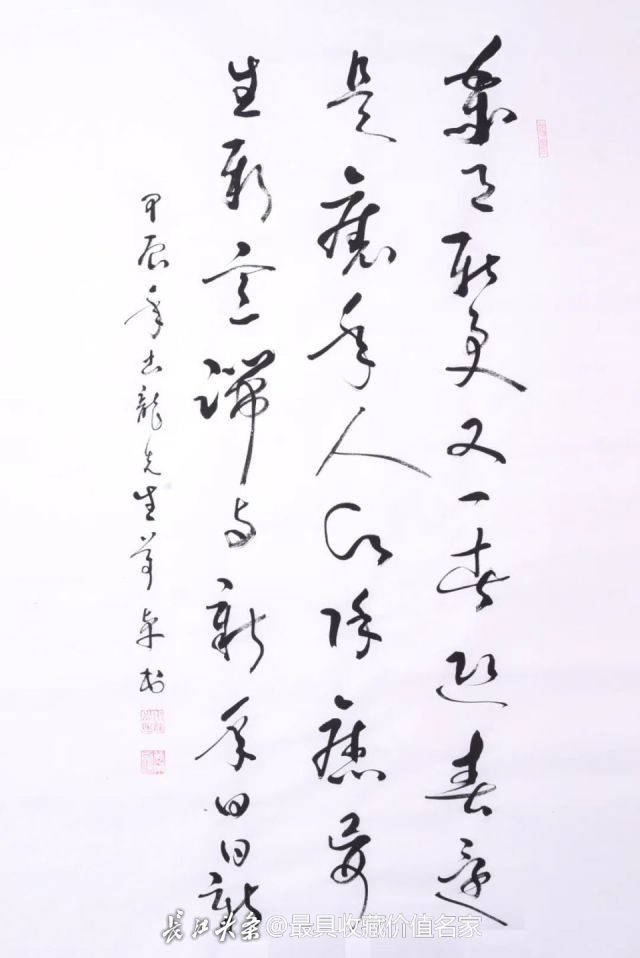 更又一春迎春還
是舊年人欲除舊歲
生新意與新年日日新
甲辰年龍先生書
长江头条@最具收藏价值名家